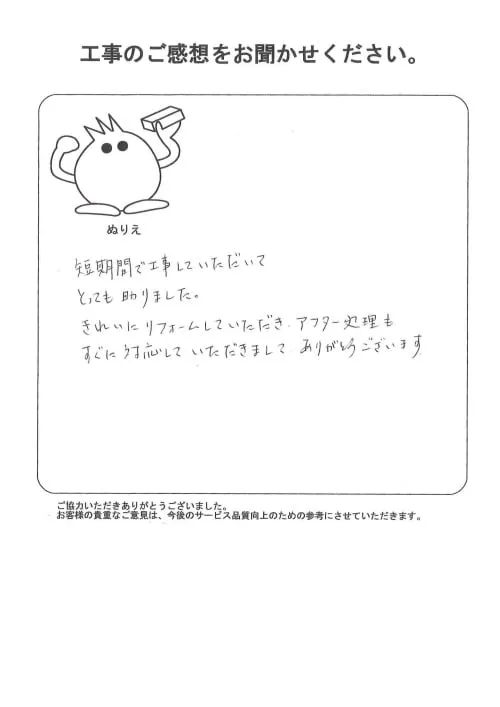 工事のご感想をお聞かせください。
ぬりえ
短期間で工事していただいて
とっても助りました。
きれいにリフォームしていただき、アフター処理も
すぐに対応して いただきまして ありがとうございます
ご協力いただきありがとうございました。
お客様の貴重なご意見は、今後のサービス品質向上のための参考にさせていただきます。